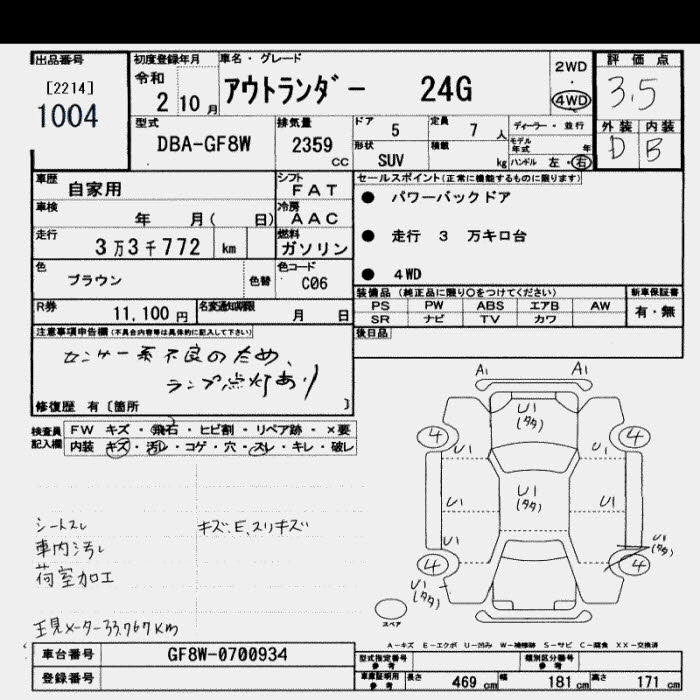 出品番号
[2214]
1004
初度登録年月
令和
2 10月
車名・グレード
アウトランダー 24G
2WD
・
4WD
評価点
3.5
外装 内装
D B
型式
DBA-GF8W
排気量
2359
cc
ドア 5
定員 7 人
形状 SUV
積載 kg
ディーラー・並行
モデル年式 年
ハンドル 左・右
車歴
自家用
シフト
FAT
セールスポイント(正常に機能するものに限ります)
● パワーバックドア
● 走行 3 万キロ台
● 4WD
車検
年 月( 日)
冷房
AAC
走行
3万3千772 km
燃料
ガソリン
色
ブラウン
色替
色コード
C06
R券
11,100円
名変通知期限
月 日
装備品(純正品に限り○をつけてください)
PS PW ABS エアB AW
SR ナビ TV カワ
新車保証書
有・無
後日品
注意事項申告欄(不具合内容等は具体的に記入して下さい)
センサー系不良のため、
ランプ点灯あり
修復歴 有〔箇所 〕
検査員記入欄
FW キズ・飛石・ヒビ割・リペア跡・×要
内装 キズ・汚レ・コゲ・穴・スレ・キレ・破レ
シートスレ
キズ、E、スリキズ
車内汚レ
荷室加工
A1 A1
U1
(タタ)
4 4
U1 U1
U1
(タタ)
U1 U1
U1
U1
(タタ)
4 4
U1
(タタ)
スペア
A-キズ E-エクボ U-凹み W-補修跡 S-サビ C-腐食 XX-交換済
車台番号
GF8W-0700934
登録番号
型式指定番号参考
類別区分番号参考
車庫証明用参考
長さ 469 cm
幅 181 cm
高さ 171 cm